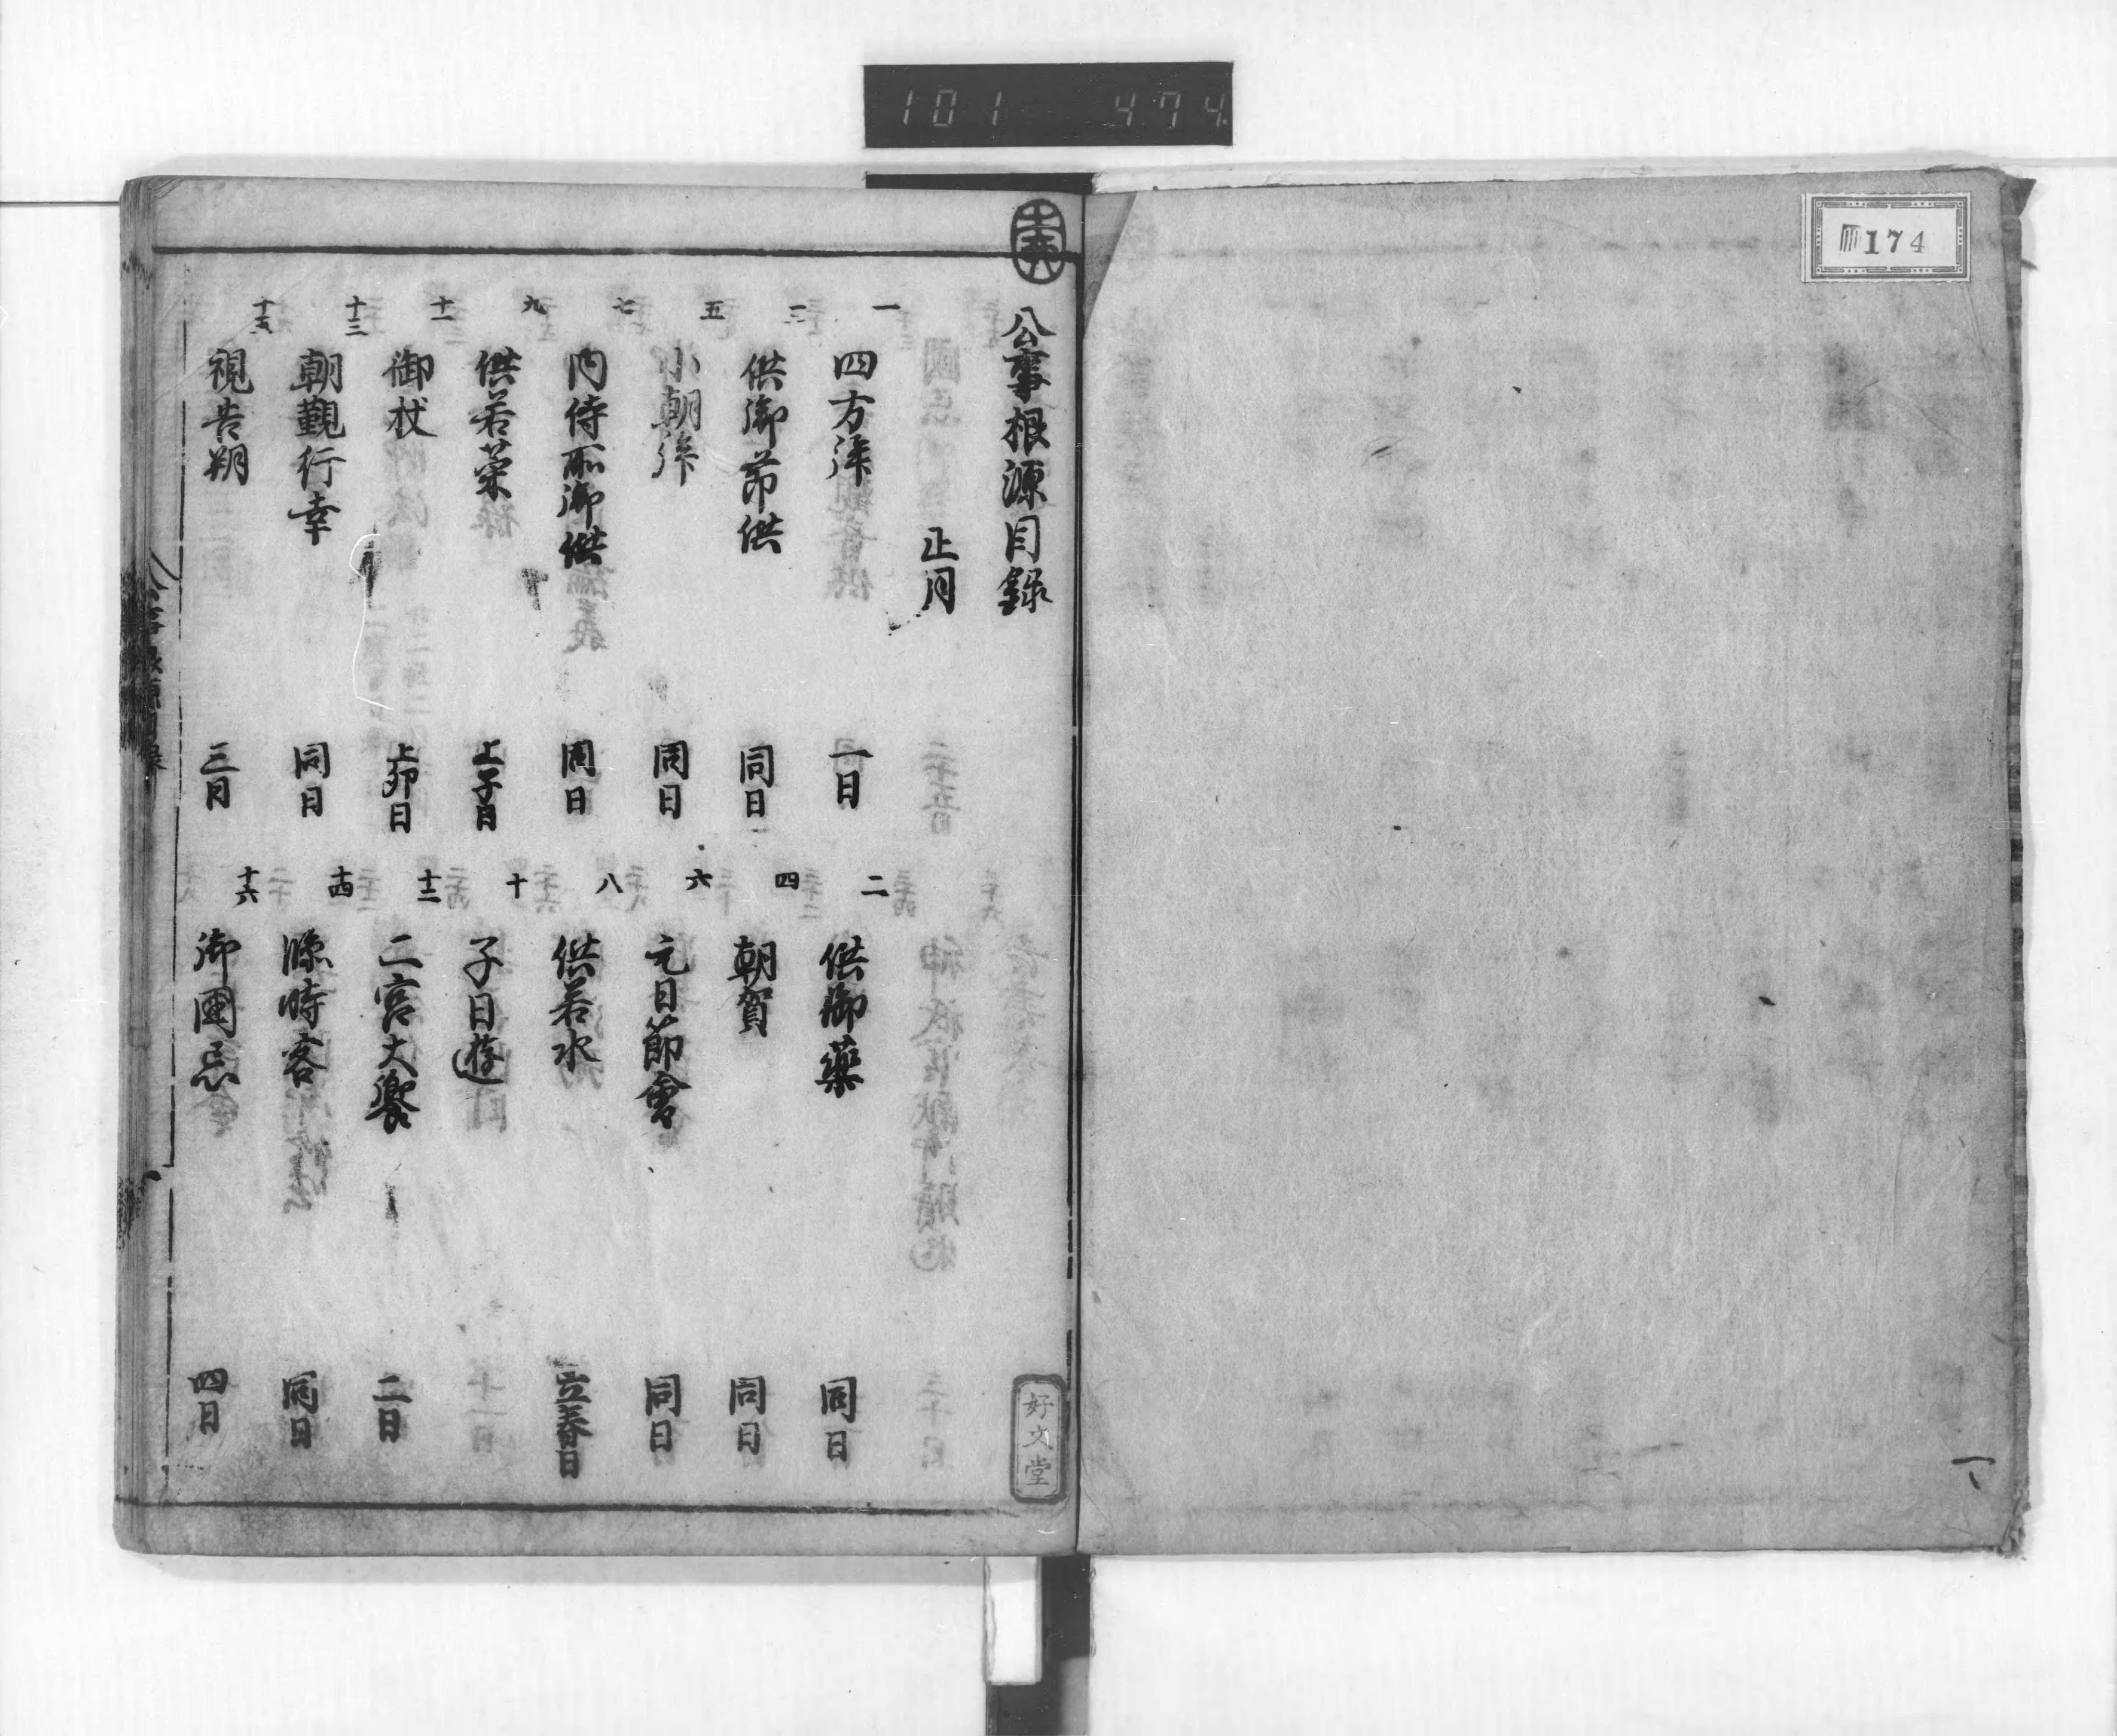 101 474
174
公事根源目録
正月
一 四方拜 一日
二 供御藥 同日
三 供御節供 同日
四 朝賀 同日
五 小朝拜 同日
六 元日節會 同日
七 内侍所御供 同日
八 供若水 立春日
九 供若菜 上子日
十 子日遊
十一 御杖 上卯日
十二 二宮大饗 二日
十三 朝覲行幸 同日
十四 臨時客 同日
十五 視告朔 三日
十六 御國忌 四日
好文堂